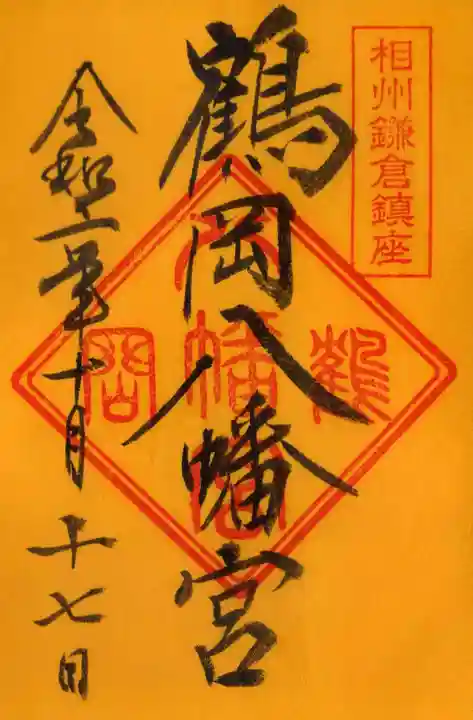 相州鎌倉鎮座
鶴岡八幡宮
鶴岡八幡宮
令和二年十月十七日